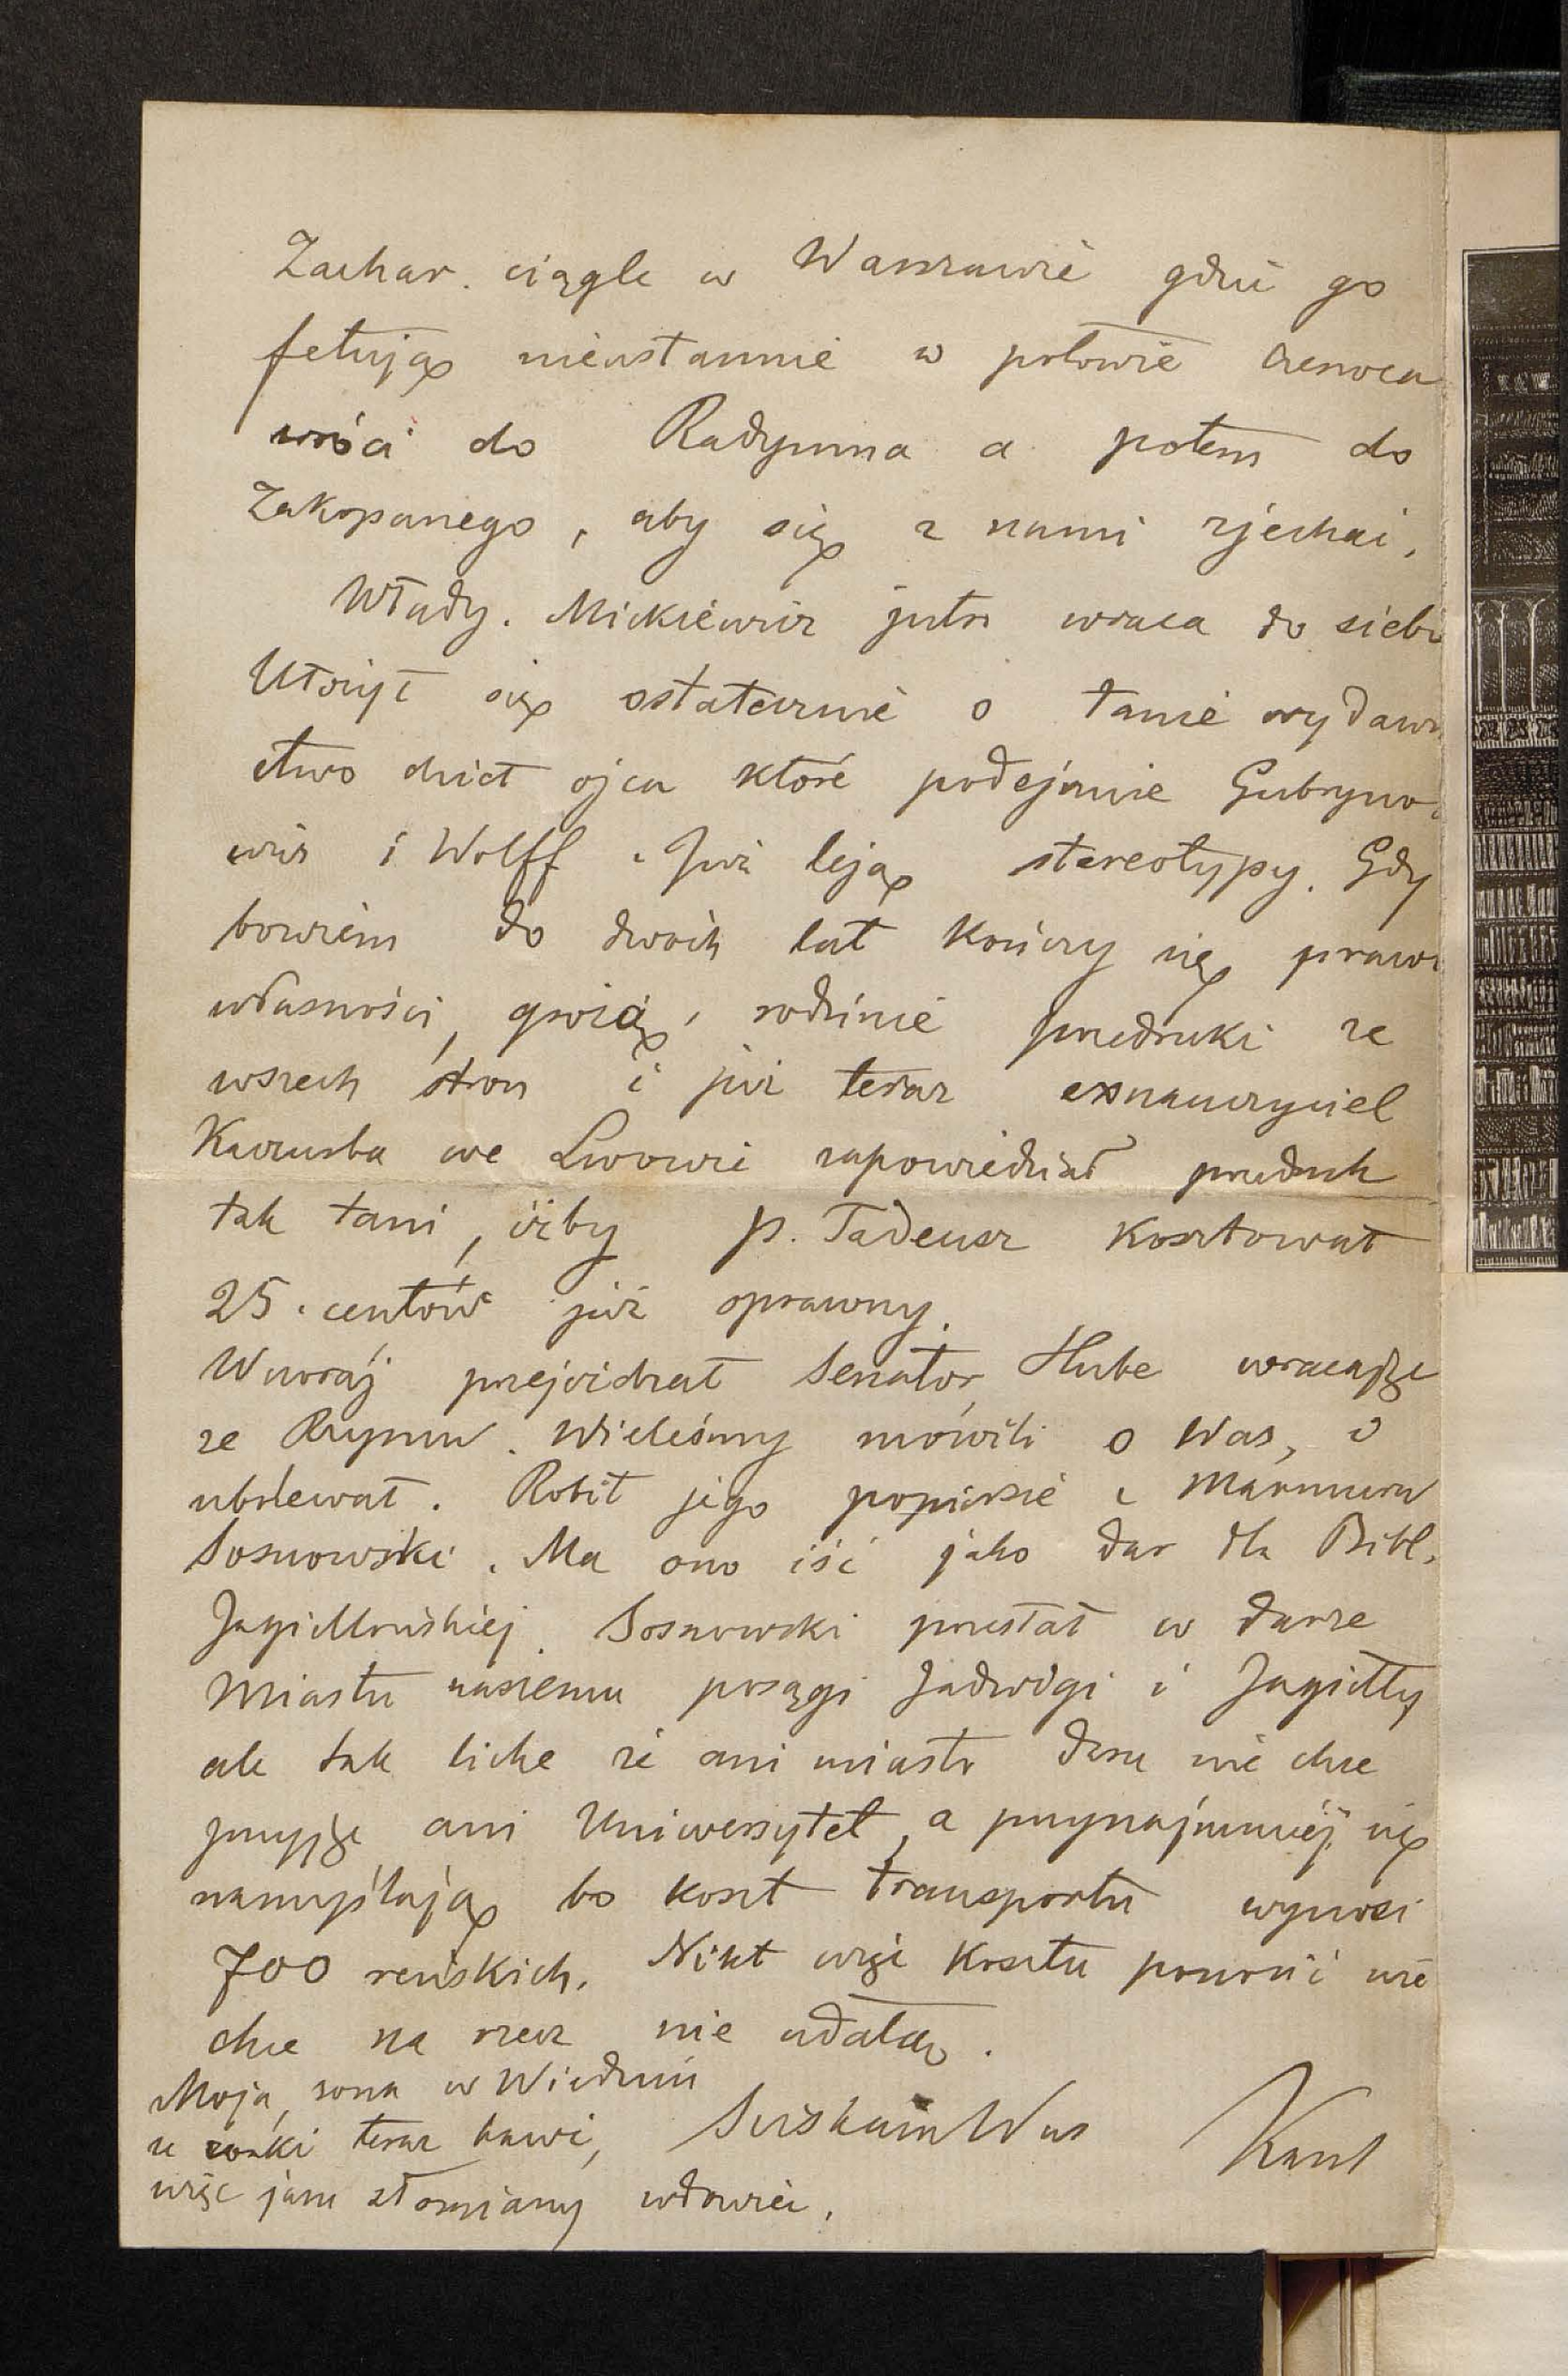 Zachar. ciągle w Warszawie gdzie go
fetują nieustannie w połowie czerwca
wróci do Radymna a potem do
Zakopanego, aby się z nami zjechać.
Włady. Mickiewicz jutro wraca do siebie
Ułożył się ostatecznie o tanie wydawni
ctwo dzieł ojca które podejmie Gubryno-
wicz i Wolff. Już leją stereotypy. Gdy
bowiem do dwóch lat kończy się prawo
własności, grożą rodzinie przedruki ze
wszech stron i już teraz exnauczyciel
we Lwowie zapowiedział przedruk
tak tani, iżby p. Tadeusz kosztował
25. centów już oprawny.
Wczoraj przejeżdżał Senator Hube wracając
ze Rzymu. Wieleśmy mówili o Was, i
ubolewał. Robił jego popiersie z marmuru
Sosnowski. Ma ono iść jako dar dla Bibl.
Jagiellońskiej. Sosnowski przesłał w darze
Miastu naszemu posągi Jadwigi i Jagiełły
ale tak liche że ani miasto daru nie chce
przyjąć ani Uniwersytet, a przynajmniej się
namyślają bo koszt transportu wynosi
700 reńskich. Nikt więc kosztu ponosić nie
chce na rzecz nie udałą.
Moja żona w Wiedniu
u córki teraz bawi, Ściskam Was Karol
więc jam słomiany wdowiec.